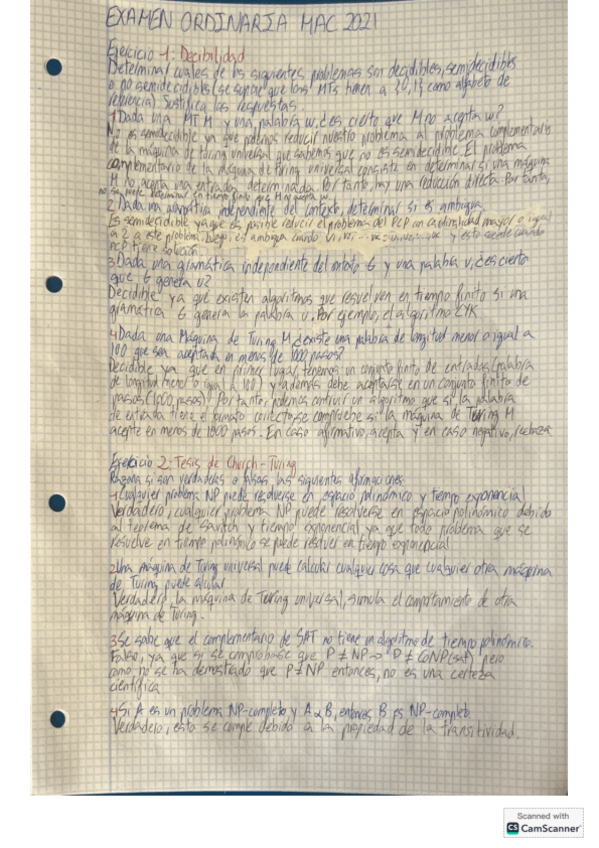 EXAMEN ORDINARIA MAC 2021
Ejercicio 1: Decibilidad
Determinar cuales de los siguientes problemas son decidibles, semidecidibles
o no semidecidibles (se supone que las MTs tienen a {0,1} como alfabeto de
referencia). Justifica las respuestas.
1 Dada una MT M y una palabra w, ¿es cierto que M no acepta w?
No es semidecidible ya que podemos reducir nuestro problema al problema complementario
de la máquina de turing universal que sabemos que no es semidecidible. El problema
complementario de la máquina de turing universal consiste en determinar si una máquina
M no acepta una entrada determinada. Por tanto, hay una reducción directa. Por tanto,
no se puede determinar en tiempo finito que M no acepta w.
2 Dada una gramática independiente del contexto, determinar si es ambigua.
Es semidecidible ya que es posible reducir el problema del PCP con cardinalidad mayor o igual
a 2 a este problema. Luego, es ambigua cuando y esto sucede cuando
PCP tiene solución
3 Dada una gramática independiente del contexto G y una palabra u, ¿es cierto
que G genera u?
Decidible ya que existen algoritmos que resuelven en tiempo finito si una
gramática G genera la palabra u. Por ejemplo, el algoritmo CYK.
4 Dada una Máquina de Turing M ¿existe una palabra de longitud menor o igual a
100 que sea aceptada en menos de 1000 pasos?
Decidible ya que en primer lugar, tenemos un conjunto finito de entradas (palabra
de longitud menor o igual a 100) y además debe aceptarse en un conjunto finito de
pasos (1000 pasos). Por tanto, podemos contruir un algoritmo que si la palabra
de entrada tiene el formato correcto, se compruebe si la máquina de Turing M
acepte en menos de 1000 pasos. En caso afirmativo, acepta y en caso negativo, rechaza
Ejercicio 2: Tesis de Church-Turing
Razona si son verdaderas o falsas las siguientes afirmaciones
1 Cualquier problema NP puede resolverse en espacio polinómico y tiempo exponencial
Verdadero, cualquier problema NP puede resolverse en espacio polinómico debido
al teorema de Savitch y tiempo exponencial ya que todo problema que se
resuelve en tiempo polinómico se puede resolver en tiempo exponencial
2 Una máquina de Turing universal puede calcular cualquier cosa que cualquier otra máquina
de Turing puede calcular
Verdadero, la máquina de Turing universal, simula el comportamiento de otra
máquina de Turing.
3 Se sabe que el complementario de SAT no tiene un algoritmo de tiempo polinómico.
Falso, ya que si se comprobase que P ≠ NP → P ≠ CoNP (sat) pero
como no se ha demostrado que P ≠ NP entonces, no es una certeza
científica
4 Si A es un problema NP-completo y A ∝ B, entonces B es NP-completo.
Verdadero, esto se cumple debido a la propiedad de la transitividad.
Scanned with
CS CamScanner